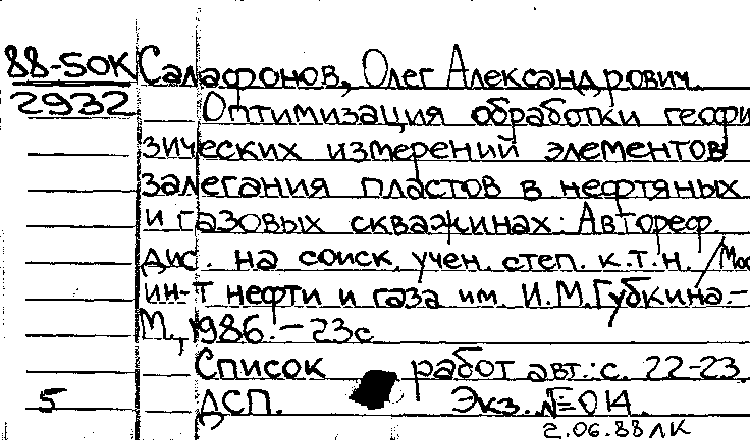 88-50К Салафонов, Олег Александрович.
2932 Оптимизация обработки геофи
зических измерений элементов
залегания пластов в нефтяных
и газовых скважинах: Автореф.
дис. на соиск. учен. степ. к.т.н. /Мос
ин-т нефти и газа им. И.М.Губкина.-
М., 1986.-23с
Список работ авт.: с. 22-23.
5 ДСП. Экз. №014
2.06.88 ЛК